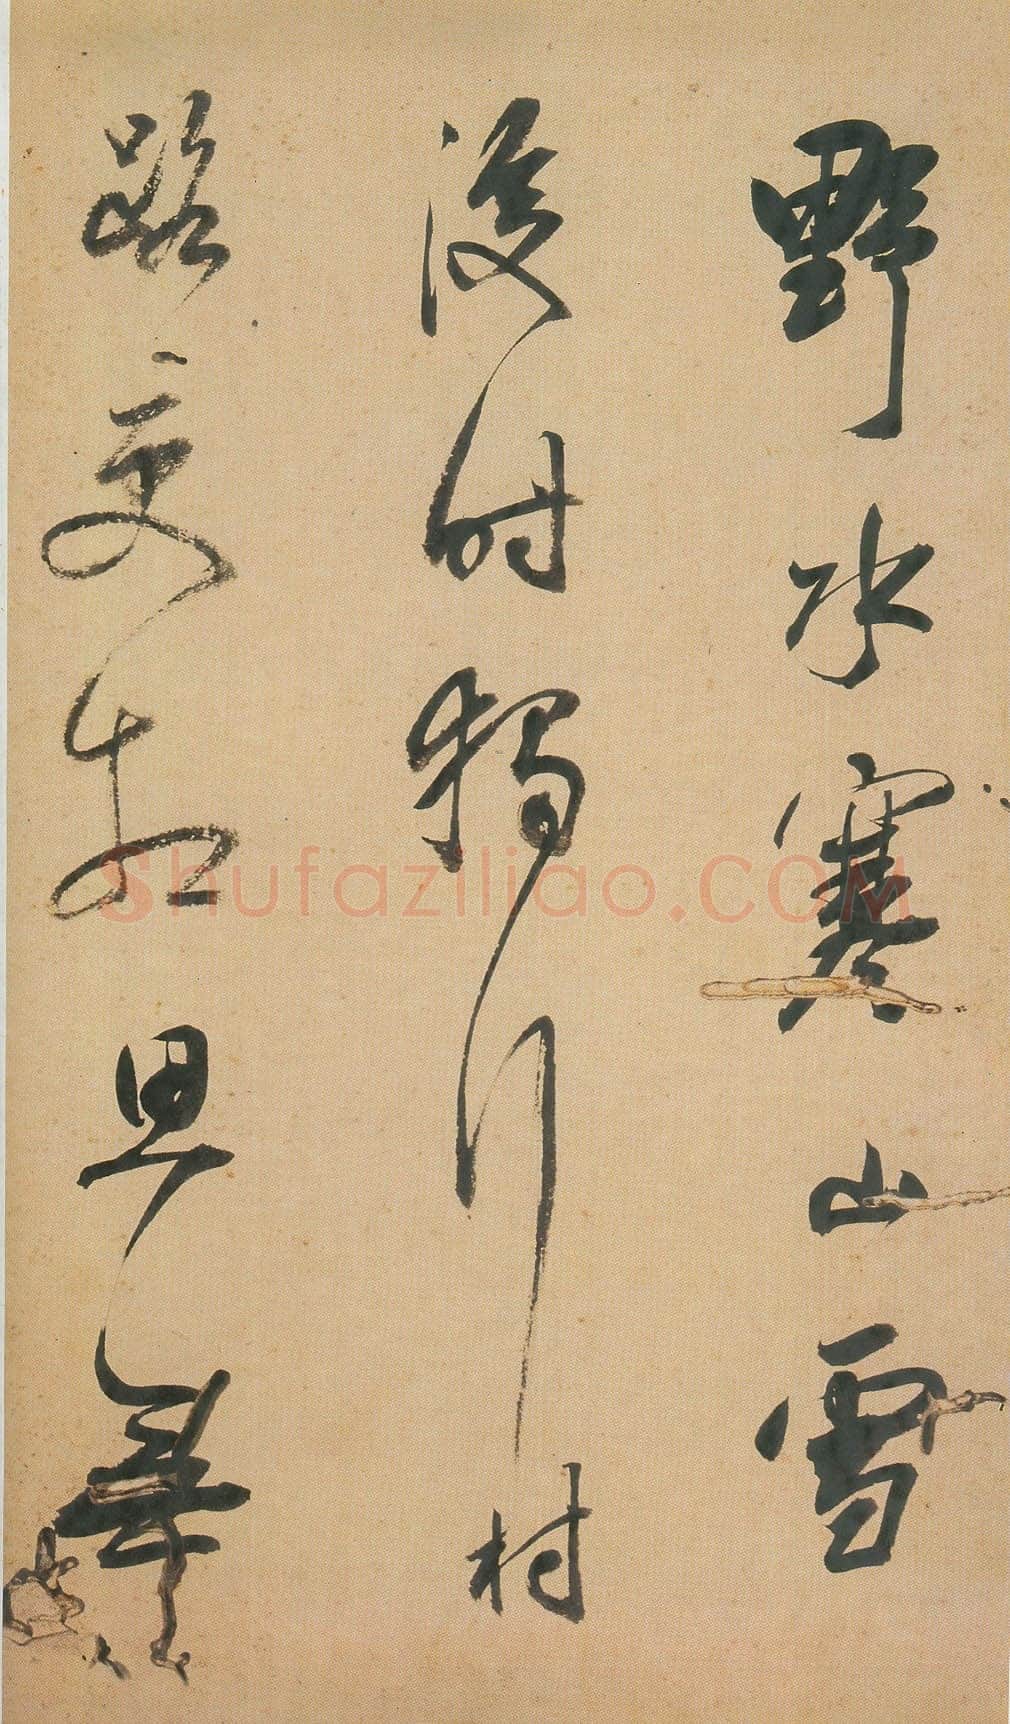 野水寒山雪
後時獨行村
路更相思無
Shufaziliao.COM